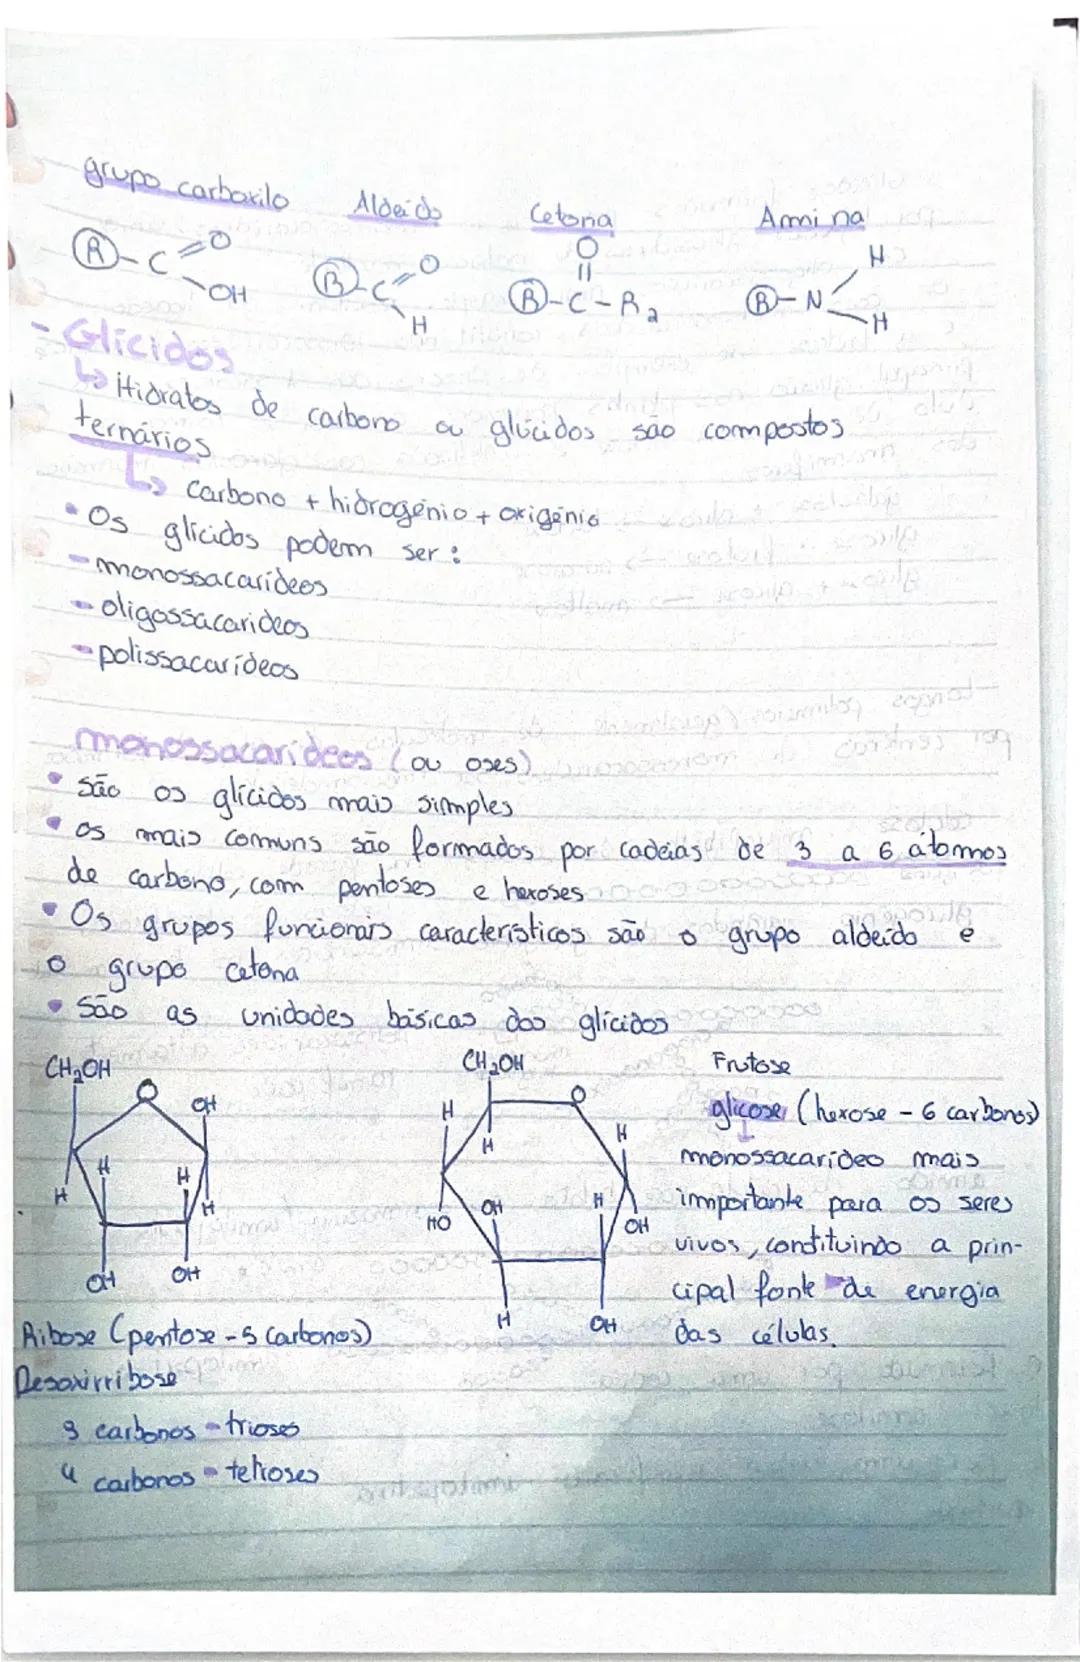 grupo carboxilo Aldeído Cetona Amina
R-C=O OH R-C=O H O R-C-R2 R-N H H
- Glícidos
↳ Hidratos de carbono ou glúcidos são compostos
ternários
↳ carbono + hidrogénio + oxigénio
• Os glícidos podem ser:
- monossacarídeos
- oligossacarídeos
- polissacarídeos
monossacarídeos (ou oses)
• São os glícidos mais simples
• os mais comuns são formados por cadeias de 3 a 6 átomos
de carbono, com pentoses e hexoses
• Os grupos funcionais característicos são o grupo aldeído e
o grupo cetona
• São as unidades básicas dos glícidos
CH2OH O OH H H H H OH OH
CH2OH O H H H OH H HO OH H OH
Ribose (pentose - 5 carbonos)
Desoxirribose
3 carbonos - trioses
4 carbonos - tetroses
Frutose
glicose (hexose - 6 carbonos)
monossacarídeo mais
importante para os seres
vivos, constituindo a prin-
cipal fonte de energia
das células.